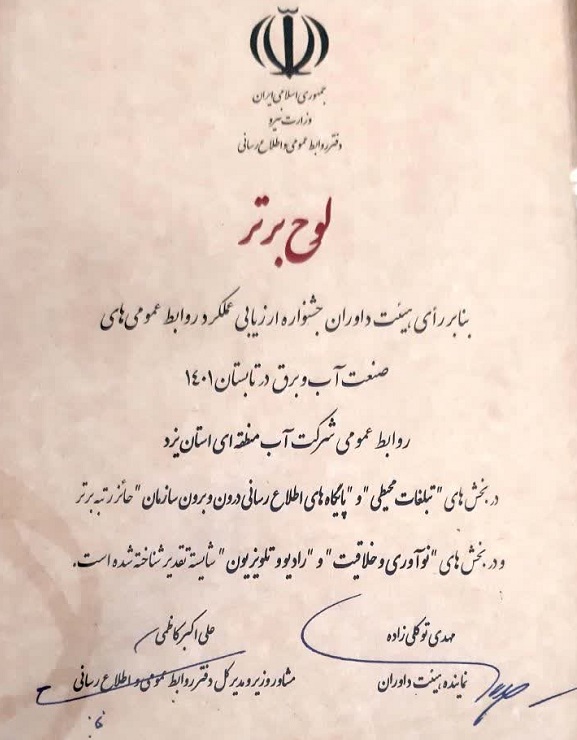 جمهوری اسلامی ایران
وزارت نیرو
دفتر روابط عمومی و اطلاع رسانی
لوح برتر
بنابر رأی هیئت داوران جشنواره ارزیابی عملکرد روابط عمومی های
صنعت آب و برق در تابستان ۱۴۰۱
روابط عمومی شرکت آب منطقه ای استان یزد
در بخش های "تبلغات محیطی" و "پایگاه های اطلاع رسانی درون و برون سازمان" حائز رتبه برتر
و در بخش های "نوآوری و خلاقیت" و "رادیو و تلویزیون" شایسته تقدیر شناخته شده است.
مهدی توکلی زاده
نماینده هیئت داوران
علی اکبر کاظمی
مشاور وزیر و مدیر کل دفتر روابط عمومی و اطلاع رسانی